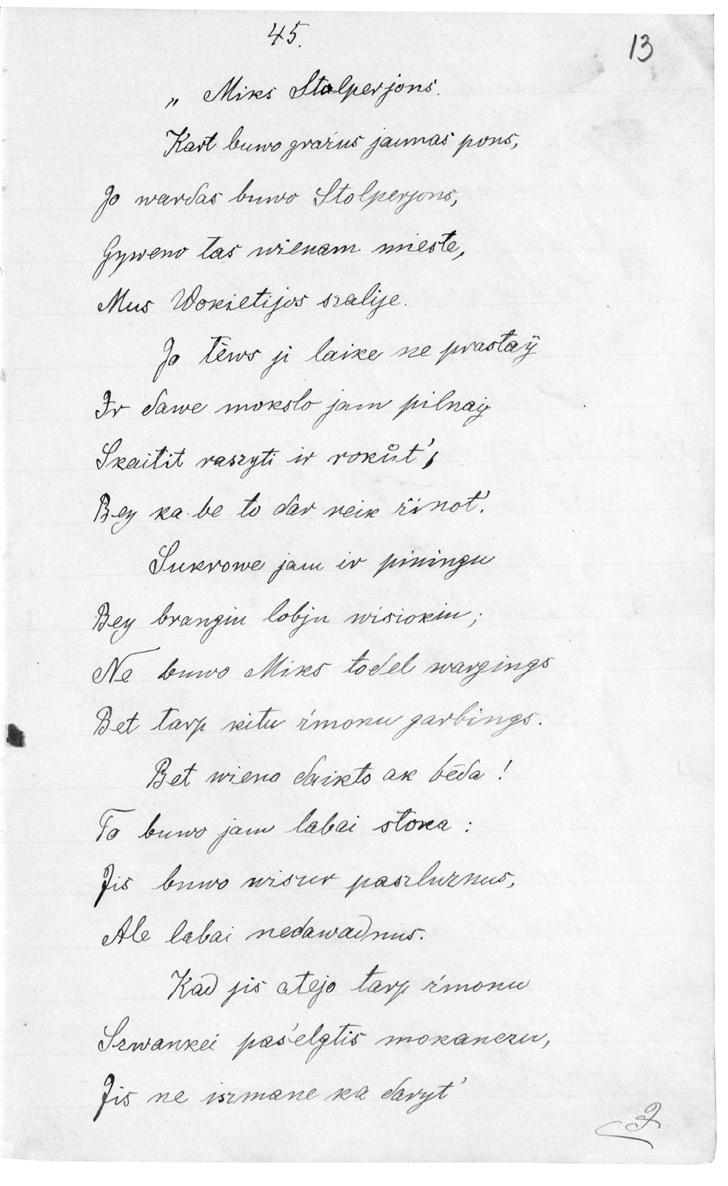 45.
13
„ Miks Stolperjons.
Kart buwo gražus jaunas pons,
Jo wardas buwo Stolperjons,
Gyweno tas wienam mieste,
Mus Wokietijos szalije.
Jo tėws ji laike ne prastaÿ
Ir dawe mokslo jam pilnaÿ
Skaitit raszyti ir rokůt',
Bey ka be to dar reik žinot'.
Sukrowe jam ir piningu
Bey brangiu lobju wisiokiu;
Ne buwo Miks todel wargings
Bet tarp kitu žmonu garbings.
Bet wieno daikto ak bėda!
To buwo jam labai stoka:
Jis buwo wisur paszlužnus,
Ale labai nedawadnus.
Kad jis atėjo tarp žmonu
Szwankei paśelgtis mokanczu,
Jis ne iszmane ka daryt'